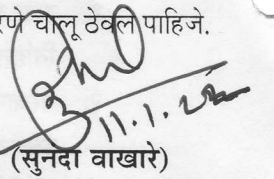 रणे चालू ठेवले पाहिजे.
11.1.
(सुनंदा वाखारे)